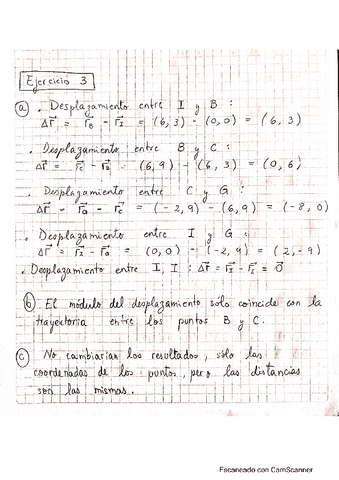 Ejercicio 3
(a) . Desplazamiento entre I y B :
Δr⃗ = r⃗_B - r⃗_I = (6, 3) - (0, 0) = (6, 3)
. Desplazamiento entre B y C :
Δr⃗ = r⃗_C - r⃗_B = (6, 9) - (6, 3) = (0, 6)
. Desplazamiento entre C y G :
Δr⃗ = r⃗_G - r⃗_C = (-2, 9) - (6, 9) = (-8, 0)
. Desplazamiento entre I y G :
Δr⃗ = r⃗_I - r⃗_G = (0, 0) - (-2, 9) = (2, -9)
. Desplazamiento entre I, I : Δr⃗ = r⃗_I - r⃗_I = 0⃗
(b) El módulo del desplazamiento sólo coincide con la
trayectoria entre los puntos B y C.
(c) No cambiarían los resultados, sólo las
coordenadas de los puntos, pero las distancias
son las mismas.
Escaneado con CamScanner